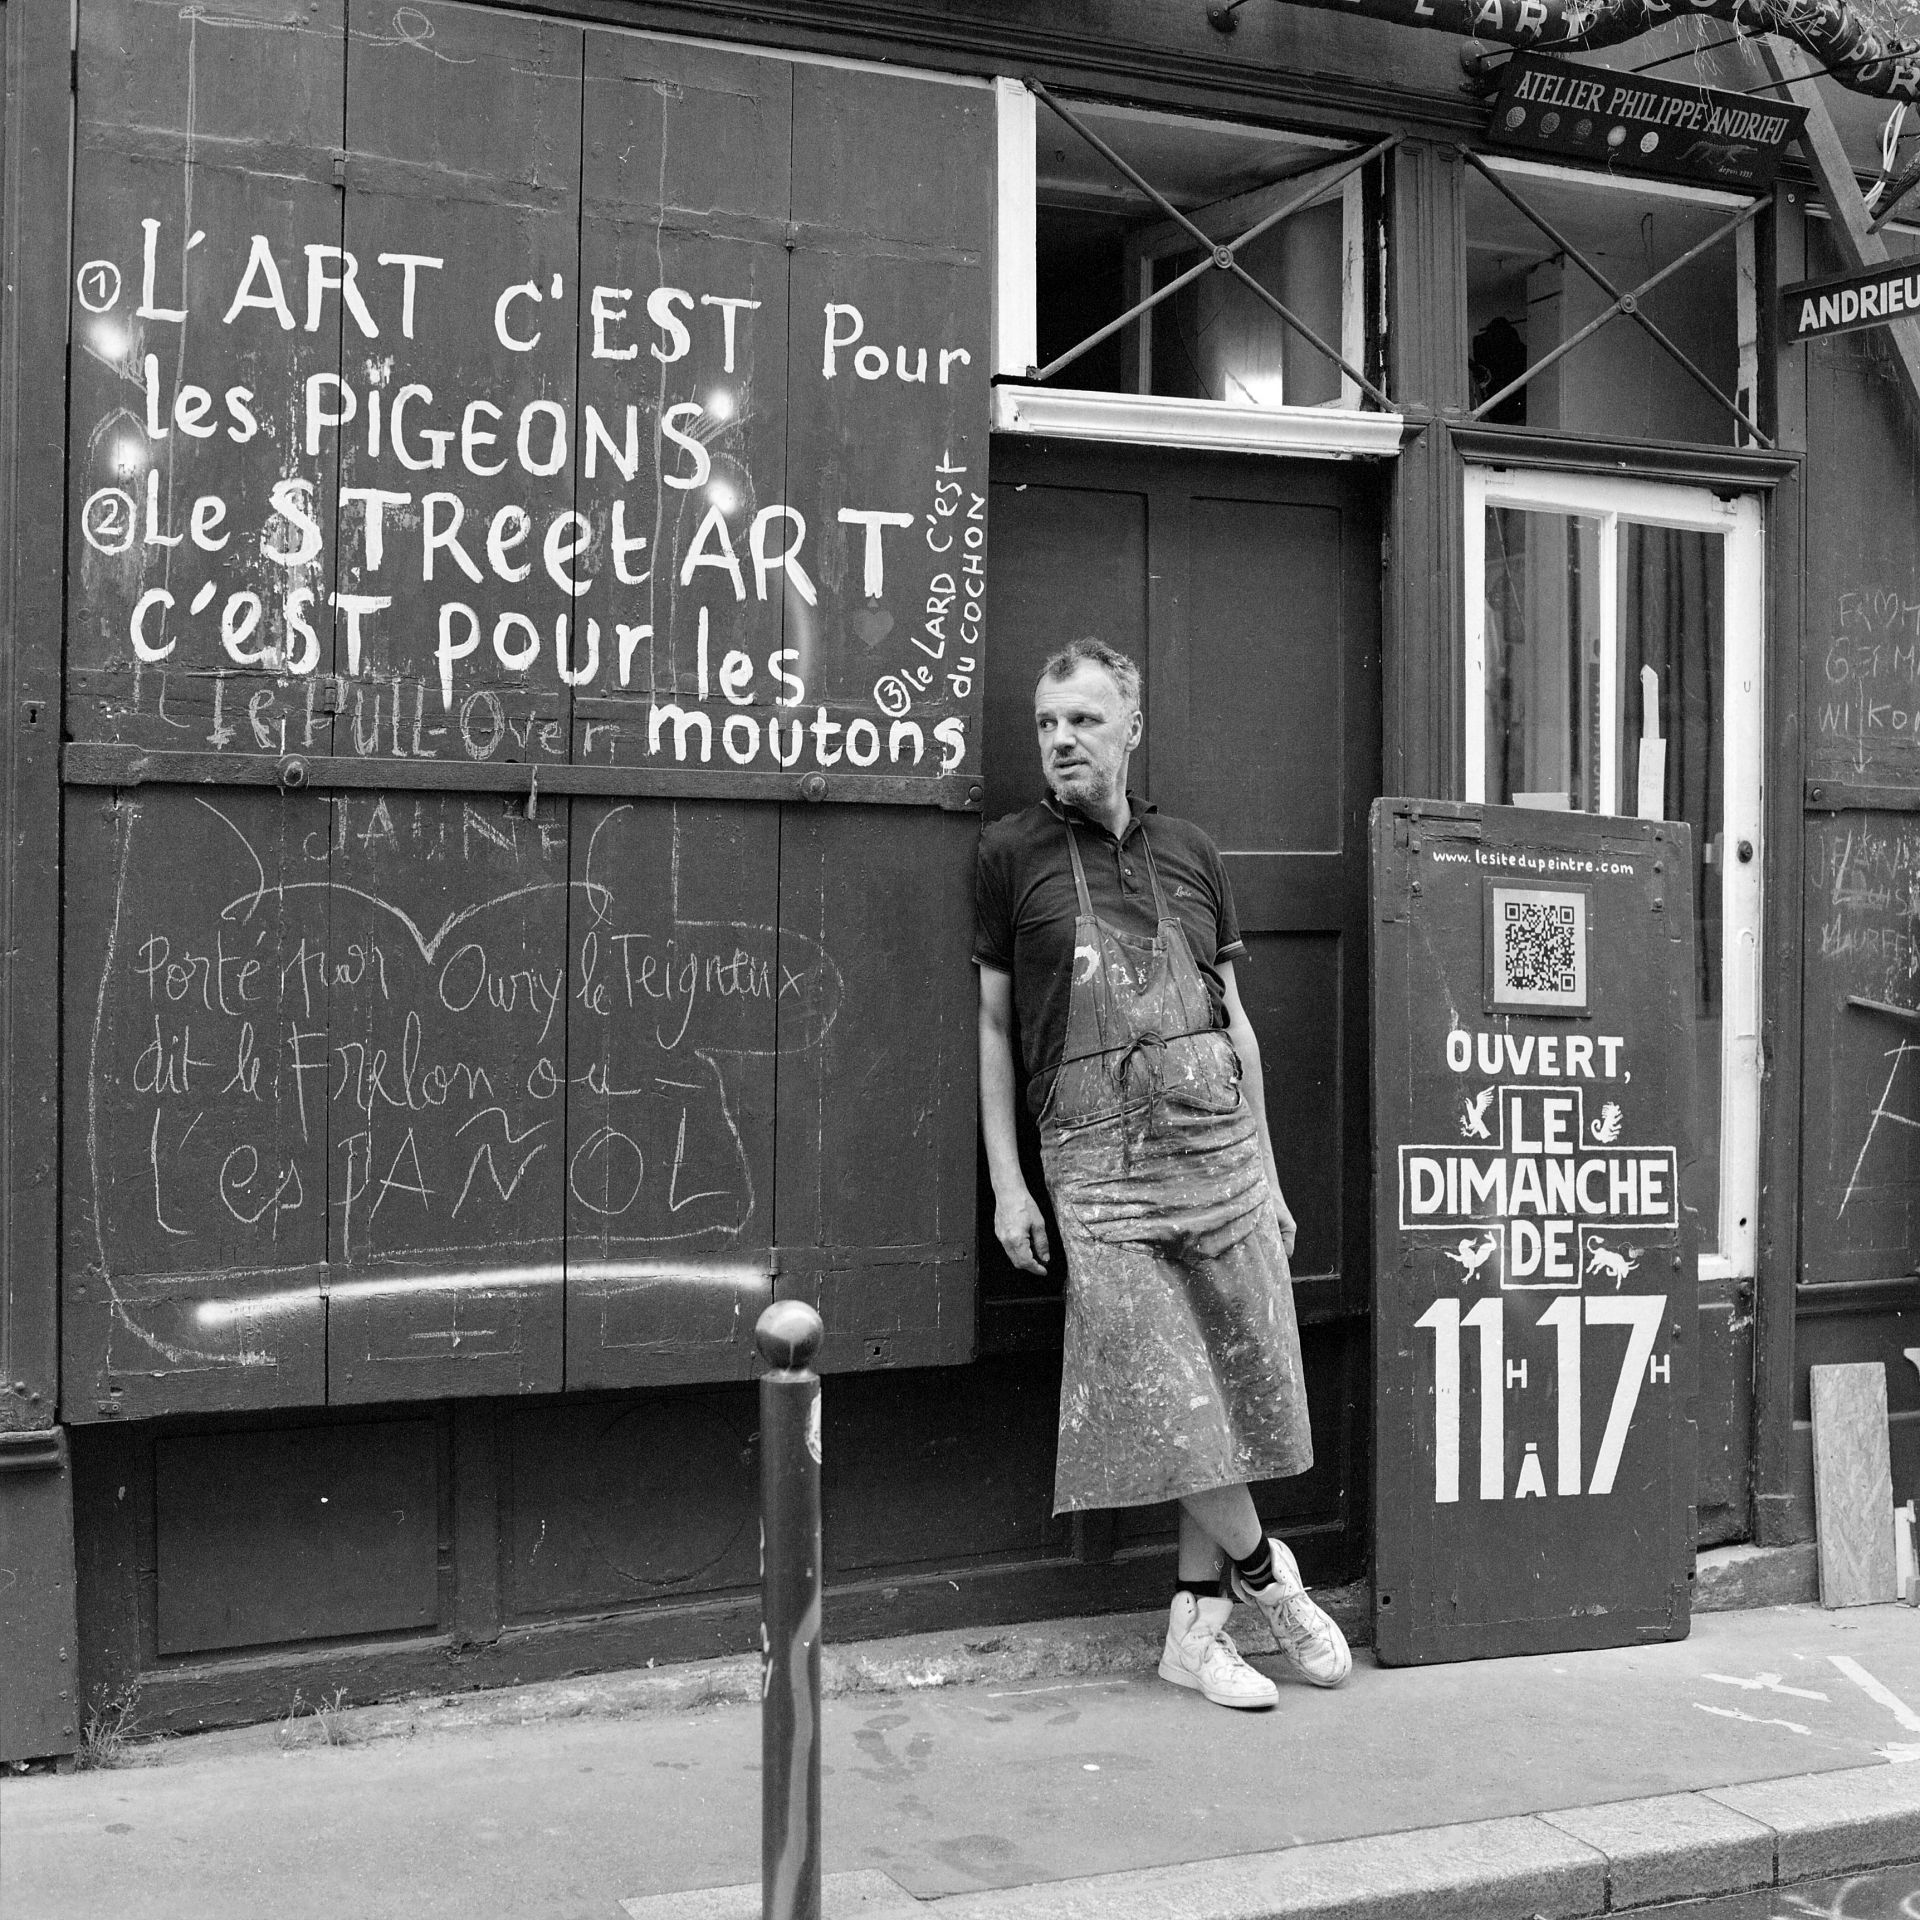 ① L'ART C'EST Pour
les PIGEONS
② Le STReet ART
c'esT pour les
moutons
③ le LARD C'est
du COCHON
Le Pull-Over
JAUNE
Porté par Oury le Teigneux
dit le Frelon ou
L'esPAÑOL
ATELIER PHILIPPE ANDRIEU
ANDRIEU
www.lesitedupeintre.com
OUVERT,
LE
DIMANCHE
DE
11H À 17H